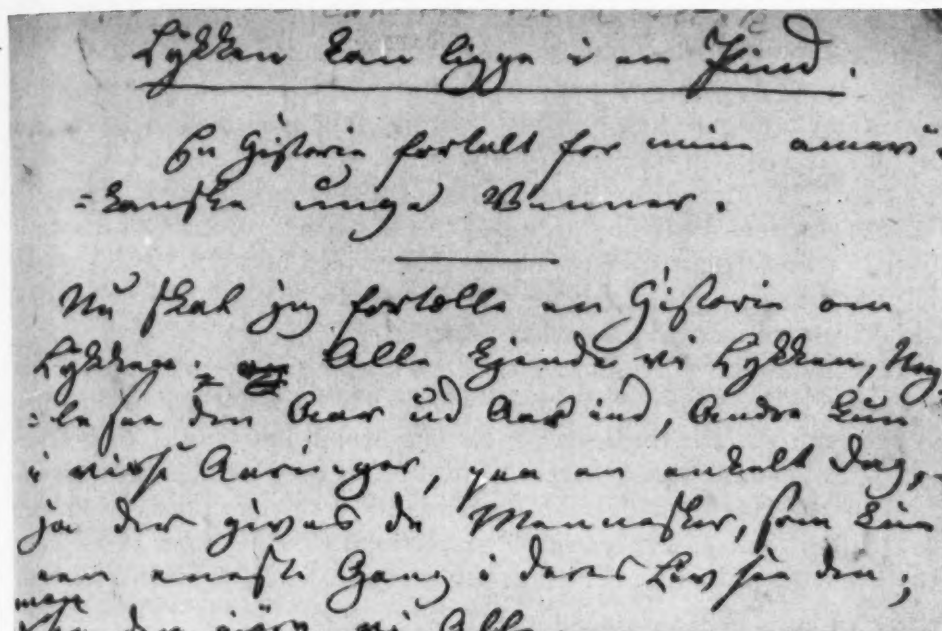 Lykken kan ligge i en Pind.
En Historie fortalt for mine ameri=
=kanske unge Venner.
Nu skal jeg fortælle en Historie om
Lykken. Alle kjende vi Lykken, Nog=
=le see den Aar ud Aar ind, Andre kun
i visse Aaringer, paa en enkelt Dag,
ja der gives de Mennesker, som kun
een eneste Gang i deres Liv see den;
men
see den gjør vi Alle